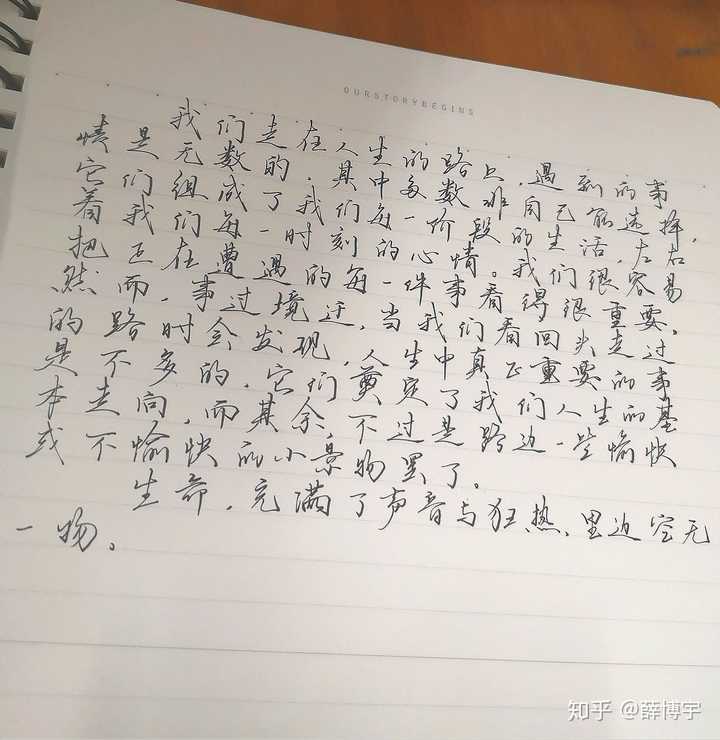 OURSTORYBEGINS
我们走在人生的路上，遇到的事
情是无数的，其中多数非自己能选择，
它们组成了我们每一阶段的生活，左右
着我们每一时刻的心情。我们很容易
把正在遭遇的每一件事看得很重要。
然而，事过境迁，当我们看回头走过
的路时会发现，人生中真正重要的事
是不多的，它们奠定了我们人生的基
本走向，而其余，不过是路边一些愉快
或不愉快的小景物罢了。
生命，充满了声音与狂热，里边空无
一物。
知乎 @薛博宇